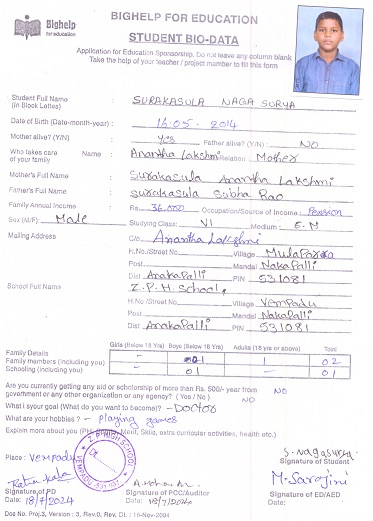 BIGHELP FOR EDUCATION
Bighelp
for education
STUDENT BIO-DATA
Application for Education Sponsorship. Do not leave any column blank
Take the help of your teacher / project member to fill this form
Student Full Name : SURAKASULA NAGA SURYA
(in Block Letters)
Date of Birth (Date-month-year) : 16-05-2014
Mother alive? (Y/N) : Yes Father alive? (Y/N) : NO
Who takes care Name : Anantha Lakshmi Relation Mother
of your family
Mother's Full Name : Surakasula Anantha Lakshmi
Father's Full Name : Surakasula Subha Rao
Family Annual Income : Rs. 36,000 Occupation/Source of Income : Pension
Sex (M/F): Male Studying Class: VI Medium : E.M
Mailing Address C/o Anantha Lakshmi
H.No./Street No. Village Mulapara
Post Mandal Nakapalli
Dist Anakapalli PIN 531081
School Full Name Z.P.H School,
H.No /Street No. Village Vempadu
Post Mandal Nakapalli
Dist Anakapalli PIN 531081
Girls (Below 18 Yrs) Boys (Below 18 Yrs) Adults (18 yrs or above) Total
Family Details
Family members (including you) – 01 1 02
Schooling (including you) – 01 – 01
Are you currently getting any aid or scholarship of more than Rs. 500/- year from NO
government or any other organization or agency? ( Yes / No ) NO
What is your goal (What do you want to become)? - DOCTOR
What are your hobbies? - playing games
Explain more about you Merit, Skills, extra curricular activities, health etc.)
Z.P.HIGH SCHOOL
Place : Vempadu
S. Nagasurya
Signature of Student
M. Sarojini
Signature of PD Signature of PCC/Auditor Signature of ED/AED
Date: 18/7/2024 Date: 18/7/2024 Date:
Doc No. Proj.3, Version : 3, Rev.0, Rev. Dt. : 15-Nov-2004